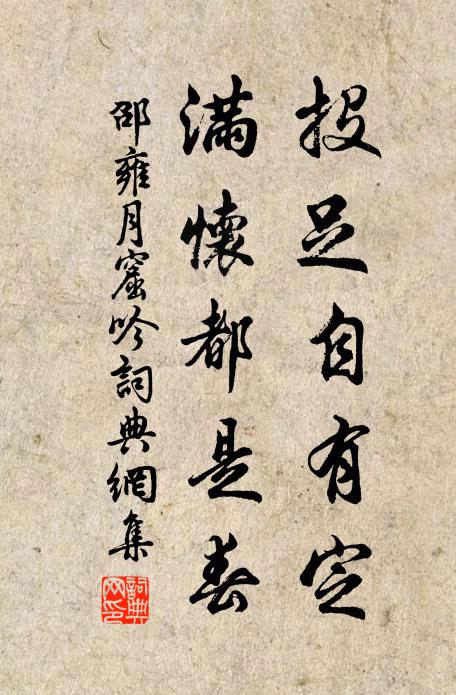 投足自有定
滿懷都是春
邵雍月窟吟詞典網集
詞典
网印